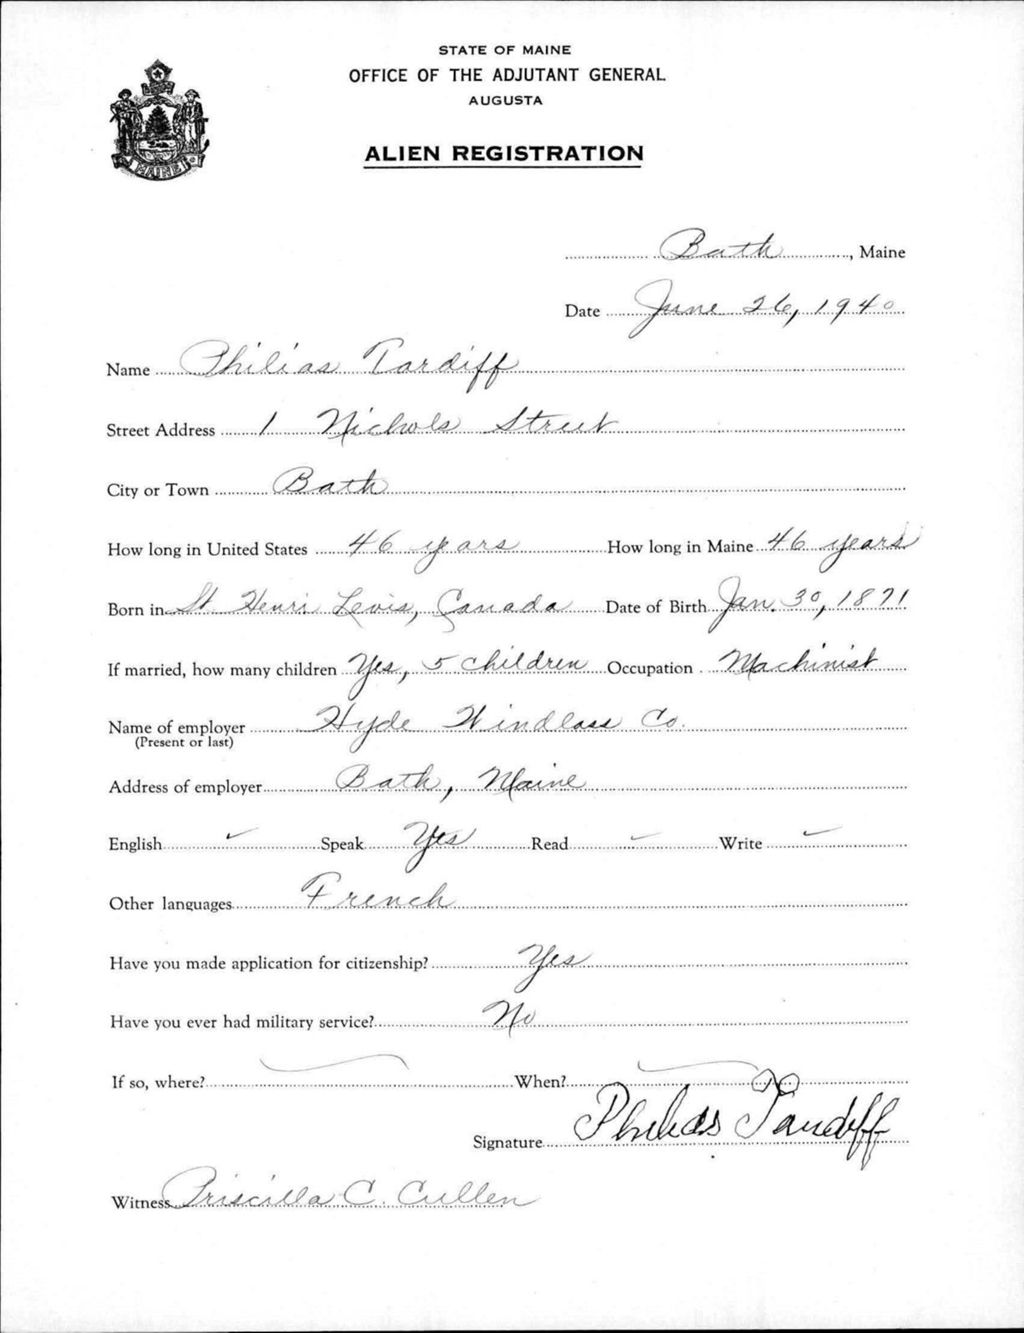 STATE OF MAINE
OFFICE OF THE ADJUTANT GENERAL
AUGUSTA
ALIEN REGISTRATION
MAINE
Bath, Maine
Date June 26, 1940
Name Philias Tardiff
Street Address 1 Nichols Street
City or Town Bath
How long in United States 46 years How long in Maine 46 years
Born in St. Henri Levis, Canada Date of Birth Jan. 30, 1871
If married, how many children Yes, 5 children Occupation Machinist
Name of employer Hyde Windlass Co.
(Present or last)
Address of employer Bath, Maine
English ✓ Speak Yes Read ✓ Write ✓
Other languages French
Have you made application for citizenship? Yes
Have you ever had military service? No
If so, where? When?
Signature Philias Tardiff
Witness Priscilla C. Cullen